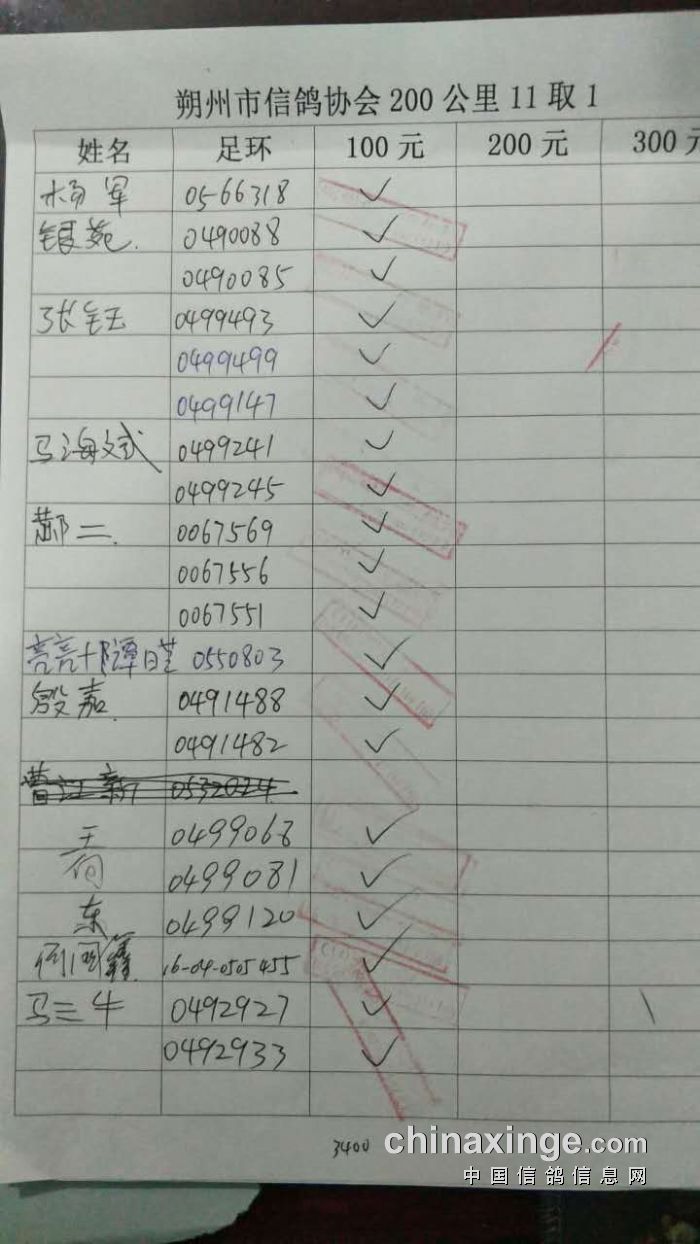 朔州市信鸽协会200公里11取1
姓名 足环 100元 200元 300元
杨军 0566318 ✓
银苑. 0490088 ✓
0490085 ✓
张钰 0499493 ✓
0499499 ✓
0499147 ✓
马海斌 0499241 ✓
0499245 ✓
郝二. 0067569 ✓
0067556 ✓
0067551 ✓
亮亮十 0550803 ✓
殷嘉. 0491488 ✓
0491482 ✓
曹江新 0532024
王 0499068 ✓
向 0499081 ✓
东 0499120 ✓
国鑫 16-04-0505455 ✓
马三牛 0492927 ✓
0492933 ✓
3400
chinaxinge.com
中国信鸽信息网